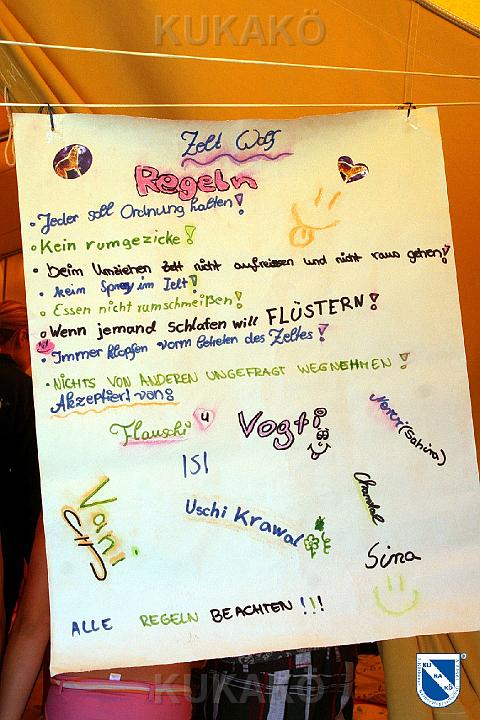 KUKAKÖ
Zelt Wolf
Regeln
• Jeder soll Ordnung halten!
• Kein rumgezicke!
• beim Umziehen Zelt nicht aufreissen und nicht raus gehen!
• kein Spray im Zelt!
• Essen nicht rumschmeißen!
• Wenn jemand schlafen will FLÜSTERN!
• Immer klopfen vorm betreten des Zeltes!
• NICHTS VON ANDEREN UNGEFRAGT WEGNEHMEN!
Akzeptiert von:
Flauschi
4
Vogti
(Sahira)
ISI
Vani
Uschi Krawal
Chantal
Sina
ALLE REGELN BEACHTEN!!!
KUKAKÖ
KU
KA
KÖ